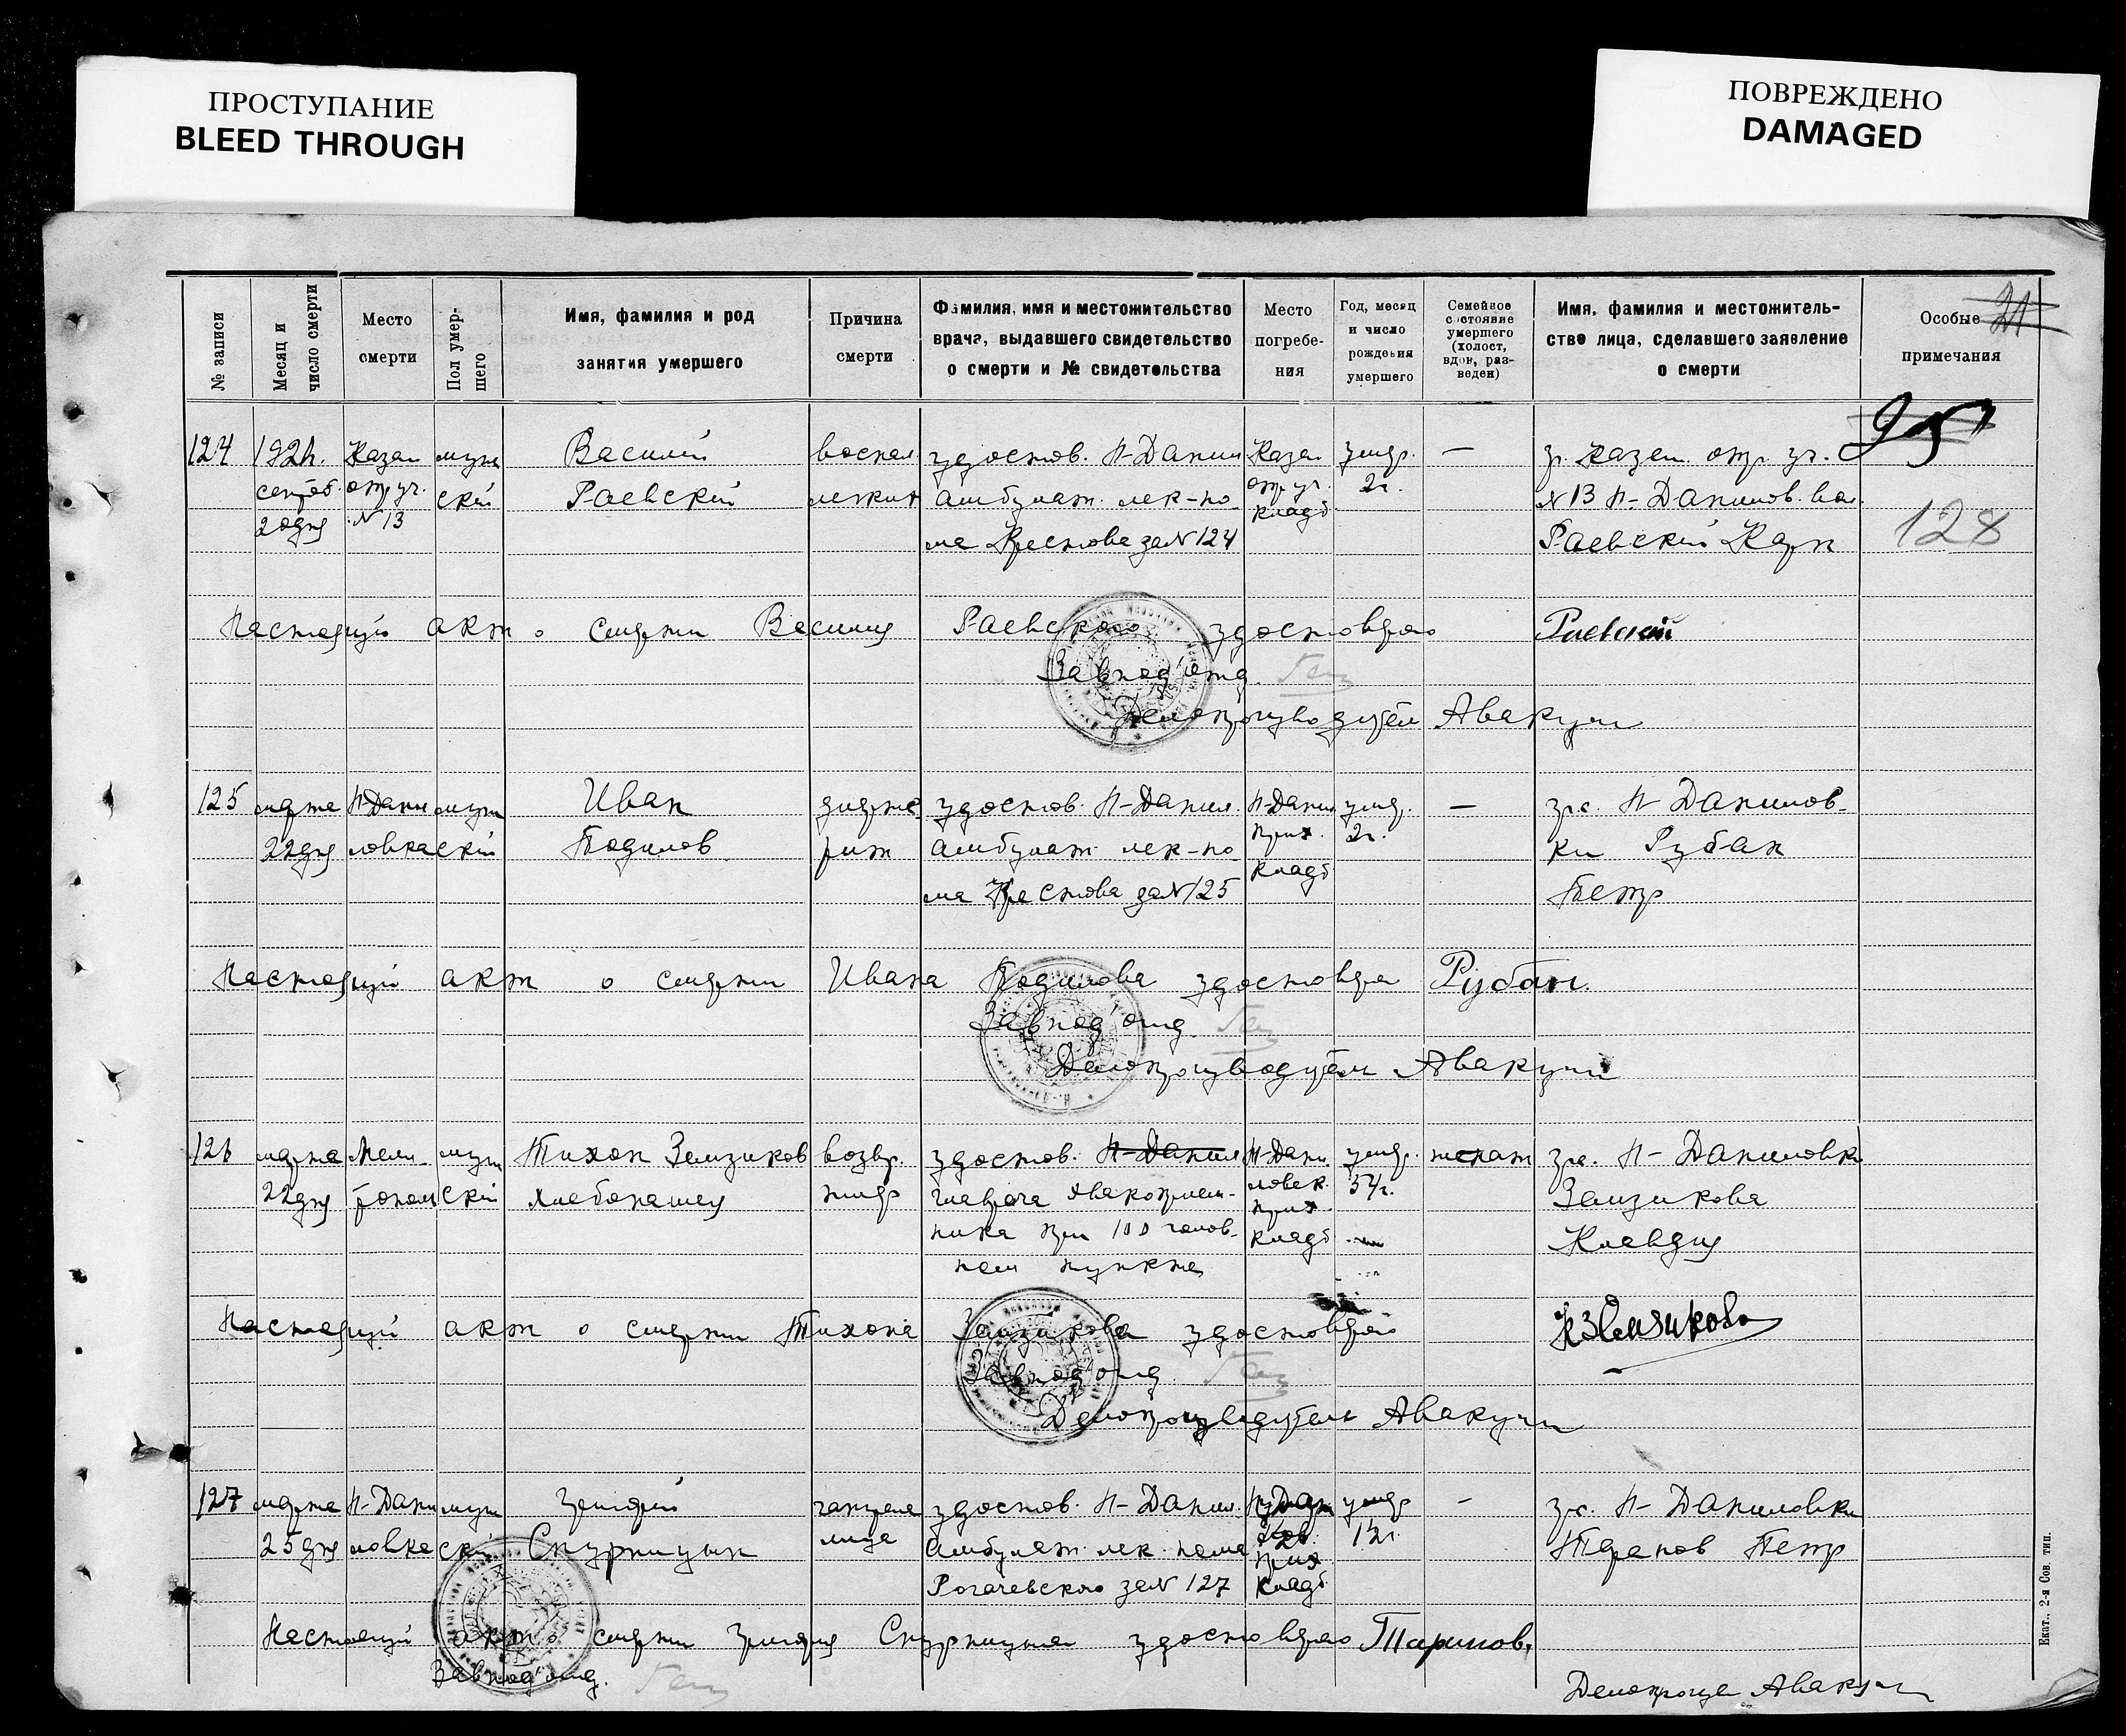 ПРОСТУПАНИЕ
BLEED THROUGH
ПОВРЕЖДЕНО
DAMAGED
№ записи
Месяц и число смерти
Место смерти
Пол умершего
Имя, фамилия и род занятия умершего
Причина смерти
Фамилия, имя и местожительство врача, выдавшего свидетельство о смерти и № свидетельства
Место погребения
Год, месяц и число рождения умершего
Семейное состояние умершего (холост, вдов, разведен)
Имя, фамилия и местожительство лица, сделавшего заявление о смерти
Особые примечания
21
95
128
124
Казен
отр. уч.
№ 13
муж
ский
Василий
Раевский
воспал
легких
удостов. Н-Данил
амбулат. лек-по
ма Крестова за № 124
Казен
отр. уч.
кладб
умер.
2 г.
—
гр. Казен. отр. уч.
№ 13 Н-Данилов. вол.
Раевский Карп
Настоящий акт о смерти Василия Раевского удостоверяю Раевский
Завпод'отд.
Делопроизводител Авакум
125
марта
22 дня
Н-Дани
ловка
муж
ский
Иван
Подилов
удостов. Н-Данил.
амбулат. лек-по
ма Крестова за № 125
Н-Данил
прих.
кладб
умер.
2 г.
—
гр. с. Н-Данилов-
ки Рубан
Петр
Настоящий акт о смерти Ивана Подилова удостоверя Рубан.
Завпод'отд.
Делопроизводитель Авакум
126
марта
22 дня
муж
ский
Тихон Земзиков
хлебопашец
удостов. Н-Данил
главрача
ника при 100 голов-
ном пункте
Н-Дани
ловск.
прих.
кладб
умер.
54 г.
женат
гр. с. Н-Даниловки
Земзикова
Клавдия
Настоящий акт о смерти Тихона Земзикова удостоверяю КЗемзикова
Завпод'отд.
Делопроизводитель Авакум
127
марта
25 дня
Н-Дани
ловка
муж
ски
Спурницын
лица
удостов. Н-Данил.
Амбулат. лек. пома
Рогачевского за № 127
прих
кладб
умер
12 г.
-
гр. с. Н-Даниловки
Таранов Петр
Настоящий акт о смерти удостоверяю
Завпод'отд.
Авакум
Екат., 2-я Сов. тип.